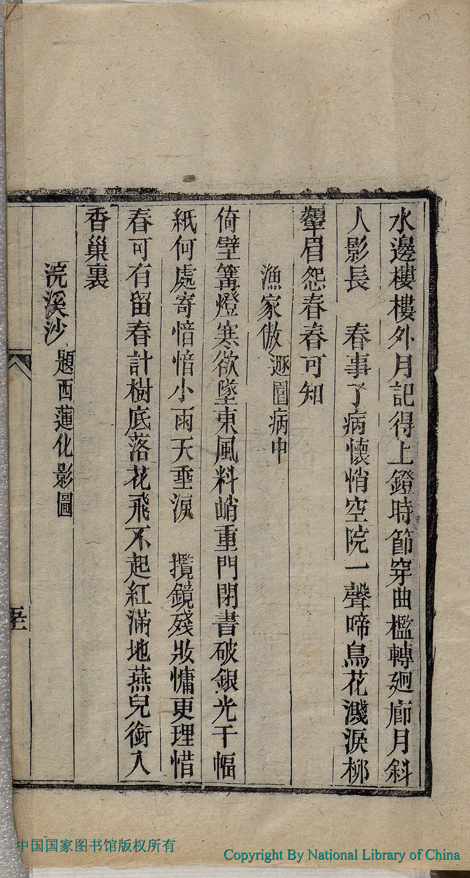 水邊樓樓外月記得上鐙時節穿曲檻轉廻廊月斜
人影長　春事了病懷悄空院一聲啼鳥花濺淚柳
顰眉怨春春可知
漁家傲 遯園病中
倚壁篝燈寒欲墜東風料峭重門閉書破銀光干幅
紙何處寄愔愔小雨天垂淚　攬鏡殘妝慵更理惜
春可有留春計樹底落花飛不起紅滿地燕兒銜入
香巢裏
浣溪沙 題西蓮化影圖
中国国家图书馆版权所有
Copyright By National Library of China